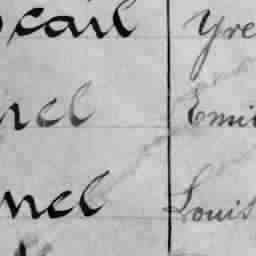 cail Yre
ncl Emi
ncl Louis